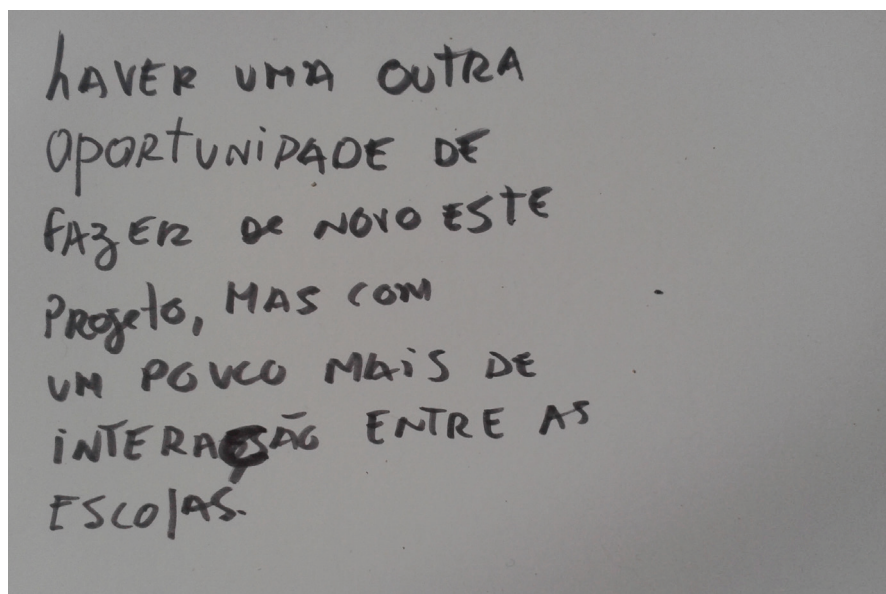 hAVER UMA OUTRA
OPORTUNiDADE DE
FAZER DE NOVO ESTE
PROjeto, MAS COM
UM POUCO MAiS DE
iNTERAÇÃO ENTRE AS
ESCOlAS.